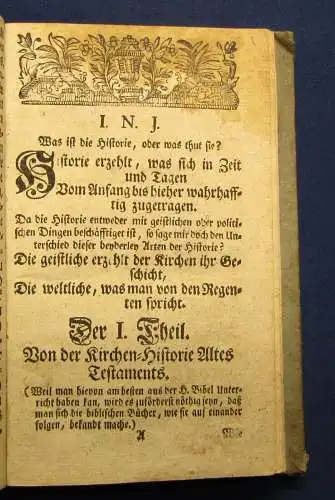 I. N. J.
Was ist die Historie, oder was thut sie?
Historie erzehlt, was sich in Zeit
und Tagen
Vom Anfang bis hieher wahrhaff-
tig zugetragen.
Da die Historie entweder mit geistlichen oder politi-
schen Dingen beschäfftiget ist, so sage mir doch den Un-
terschied dieser beyderley Arten der Historie?
Die geistliche erzehlt der Kirchen ihr Ge-
schicht,
Die weltliche, was man von den Regen-
ten spricht.
Der I. Theil.
Von der Kirchen-Historie Altes
Testaments.
(Weil man hievon am besten aus der H. Bibel Unter-
richt haben kan, wird es zuförderst nöthig seyn, daß
man sich die biblischen Bücher, wie sie auf einander
folgen, bekandt mache.)
A